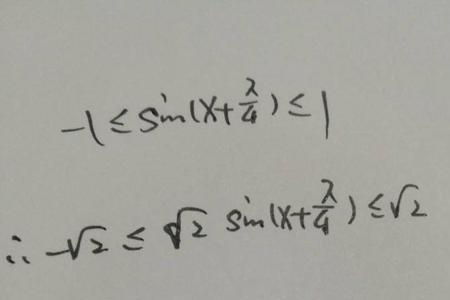 -1 ≤ sin(x+π/4) ≤ 1
∴ -√2 ≤ √2 sin(x+π/4) ≤ √2